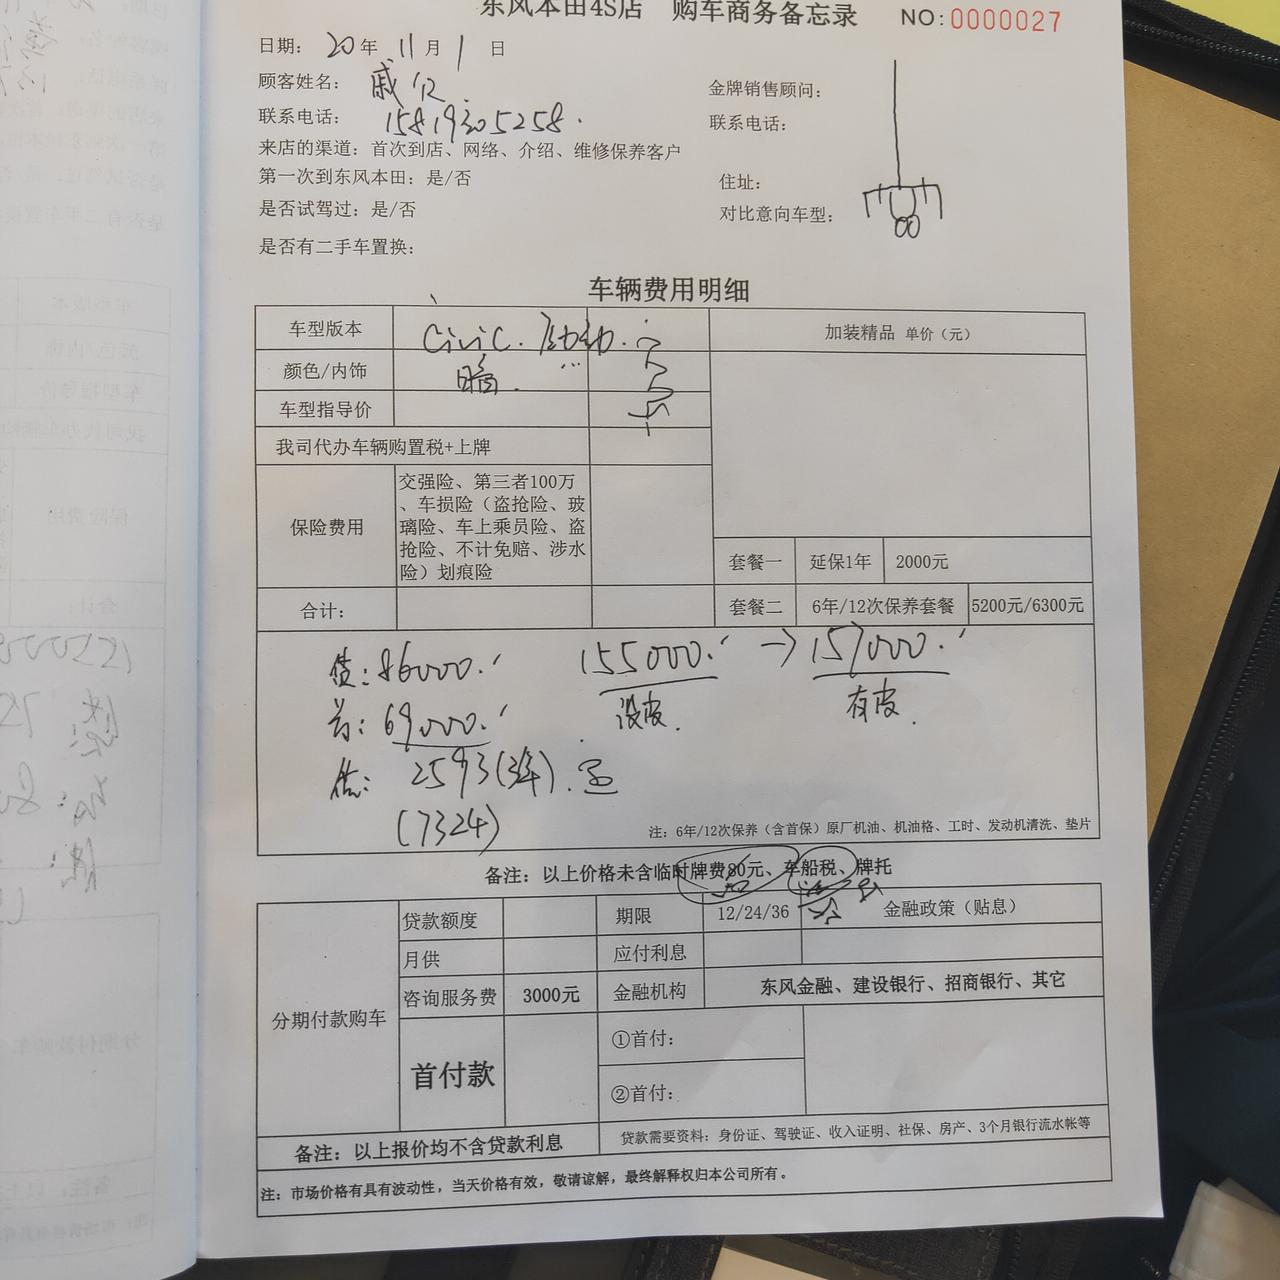 东风本田4S店 购车商务备忘录 NO:0000027
日期: 20年 11月 1日
顾客姓名:
金牌销售顾问:
联系电话: 15819305258.
联系电话:
来店的渠道: 首次到店、网络、介绍、维修保养客户
第一次到东风本田: 是/否
住址:
是否试驾过: 是/否
对比意向车型:
是否有二手车置换:
车辆费用明细
车型版本 Civic. 劲动.
加装精品 单价（元）
颜色/内饰
车型指导价
我司代办车辆购置税+上牌
保险费用
交强险、第三者100万
、车损险（盗抢险、玻
璃险、车上乘员险、盗
抢险、不计免赔、涉水
险）划痕险
套餐一 延保1年 2000元
合计:
套餐二 6年/12次保养套餐 5200元/6300元
贷: 86000. 155000. → 157000.
首: 69000. 没皮. 有皮.
供: 2593(3年).
(7324)
注: 6年/12次保养（含首保）原厂机油、机油格、工时、发动机清洗、垫片
备注: 以上价格未含临时牌费80元、车船税、牌托
分期付款购车
贷款额度 期限 12/24/36 金融政策（贴息）
月供 应付利息
咨询服务费 3000元 金融机构 东风金融、建设银行、招商银行、其它
首付款
①首付:
②首付:
备注: 以上报价均不含贷款利息
贷款需要资料: 身份证、驾驶证、收入证明、社保、房产、3个月银行流水帐等
注: 市场价格有具有波动性, 当天价格有效, 敬请谅解, 最终解释权归本公司所有。